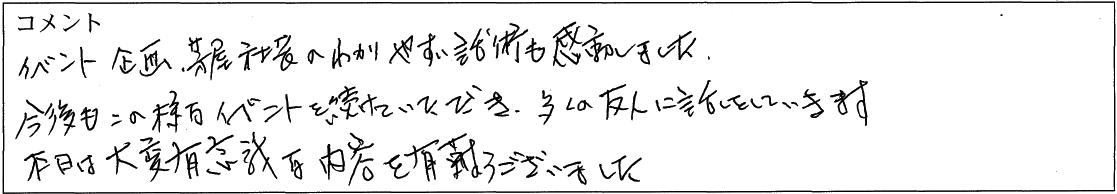 コメント
イベント企画、茶屋社長のわかりやすい話術も感動しました。
今後もこの様なイベントを続けていただき、多くの友人に話しをしていきます
本日は大変有意義な内容を有難うございました